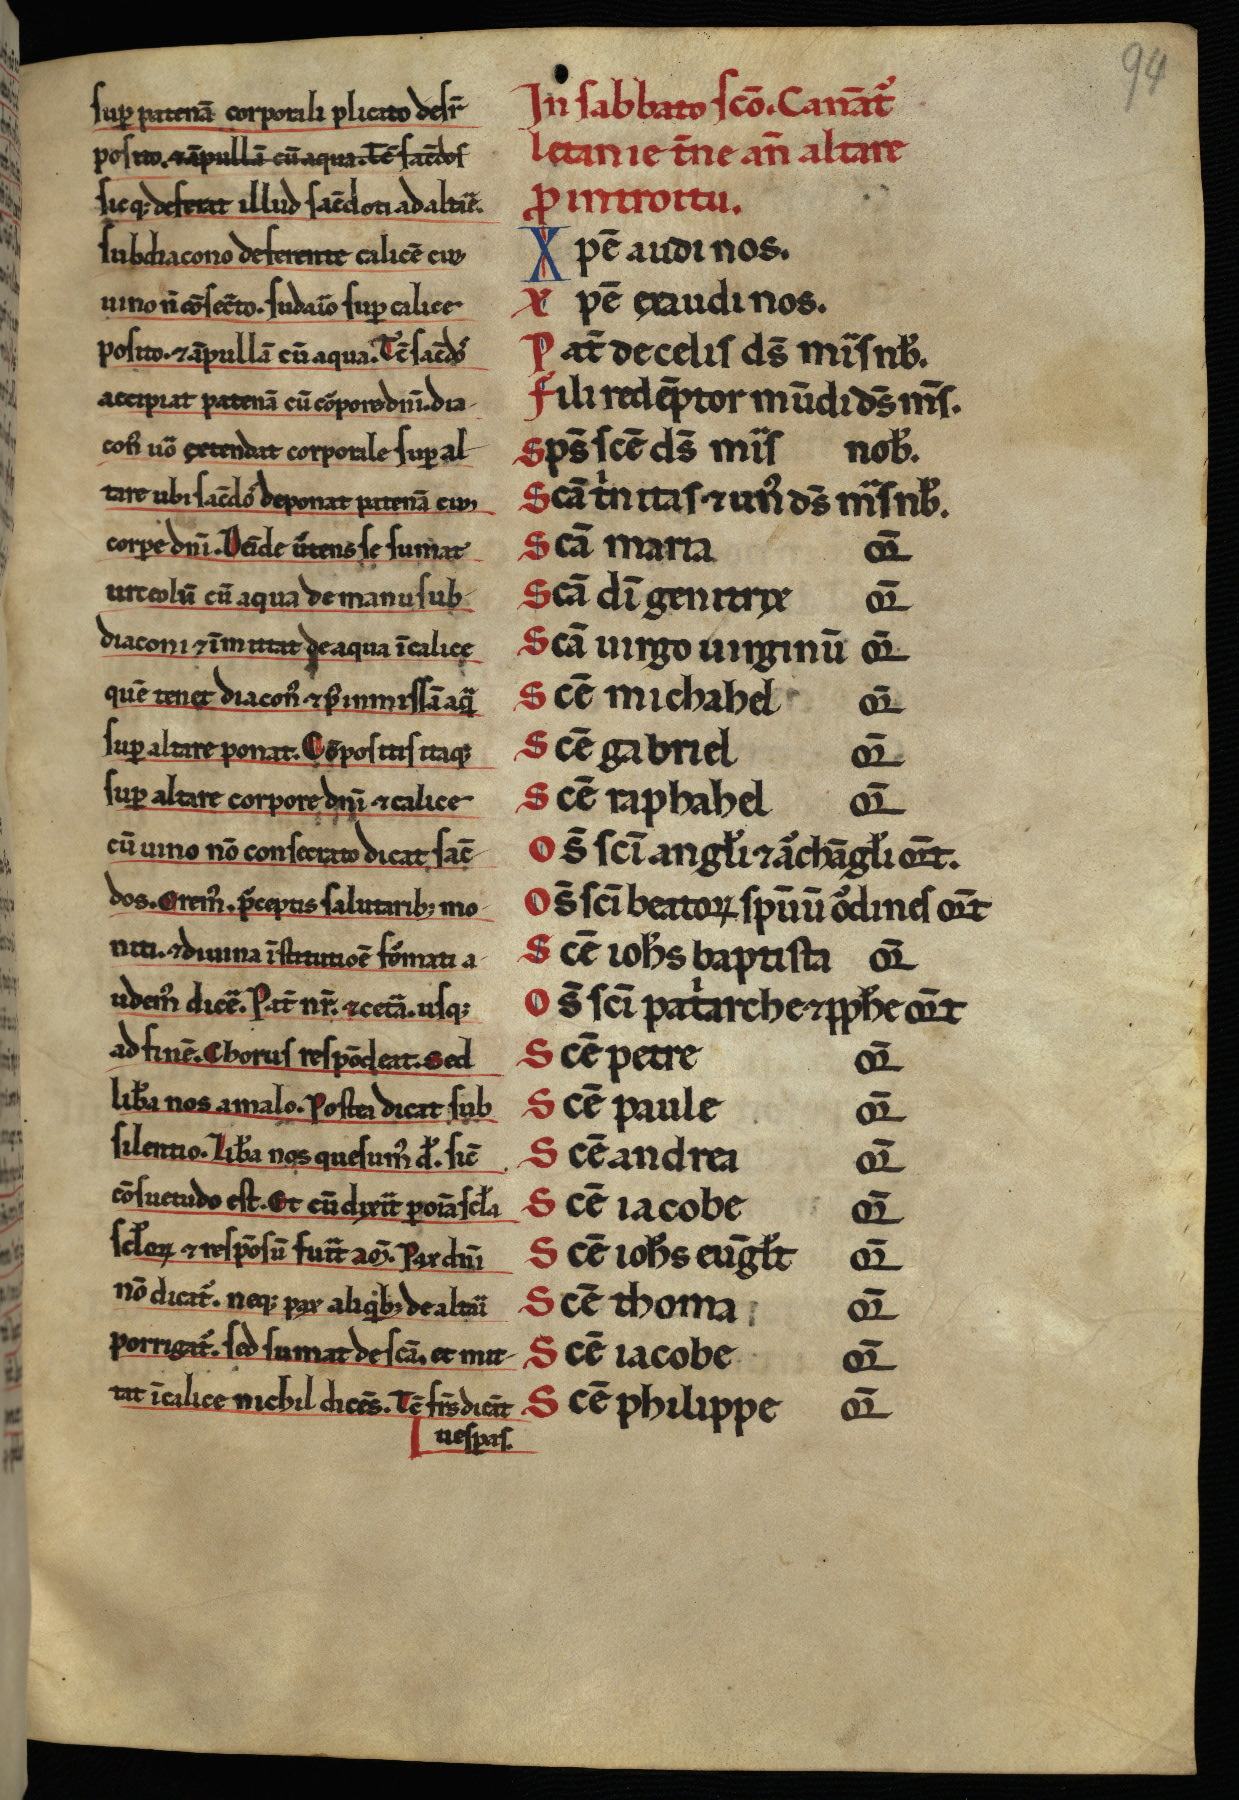 94
sup patenā corporali plicato desr̄
posito. ⁊ āpullā cū aqua. Tc̄ sac̄dos
sicq; deferat illud sac̄doti ad altar̄.
subdiacono deferente calicē cū
uino n̄ cōsecͣto. sudaͥo sup calice
posito. ⁊ āpullā cū aqua. Tc̄ sac̄dos
accipiat patenā cū cōpore dn̄i. dia-
con̄ uō extendat corporale sup al-
tare ubi sac̄dos deponat patenā cū
corpe dn̄i. Deīde ūtens se sumat
urceolū cū aqua de manu sub-
diaconi ⁊ īmittat de aqua ī calice
quē tenet diacon̄ ⁊ p̄ inmissā aqͣ
sup altare ponat. Cōpositis itaq;
sup altare corpore dn̄i ⁊ calice
cū uino nō consecrato dicat sac̄-
dos. Orem̄. p̄ceptis salutarib; mo-
niti. ⁊ diuina īstitutioē fōmati a-
udem̄ dicē. Pat̄ nr̄. ⁊ cetā. usq;
ad finē. Chorus respōdeat. Sed
lib̄a nos a malo. Postea dicat sub
silentio. Lib̄a nos quesum̄ d̄. sic̄
cōsuetudo est. Et cū dixīt p oīa scl̄a
scl̄oꝝ ⁊ respōsū fuīt am̄. Pax dn̄i
nō dicat̄. neq; pax aliqͥb; de altari
porrigat̄. sed sumat de scā. et mit-
tat ī calice nichil dicēs. Tc̄ frs̄ dicāt
uespas.
In sabbato scō. Canāt̄
letanie t̄ne an̄ altare
ꝓ introitu.
Xpē audi nos.
xpē exaudi nos.
Pat̄ de celis ds̄ mis̄ nb̄.
Fili redēptor mūdi ds̄ ms̄.
Sps̄ scē ds̄ mis̄ nob̄.
Scā tͥnitas ⁊ un̄ ds̄ mis̄ nb̄.
Scā maria or̄
Scā dī genitrix or̄
Scā uirgo uirginū or̄
Scē michahel or̄
Scē gabriel or̄
Scē raphahel or̄
Os̄ scī angl̄i ⁊ ar̄chāgl̄i or̄t.
Os̄ scī beatoꝝ spūū ōdines or̄t
Scē ioh̄s baptista or̄
Os̄ scī patͥarche ⁊ pph̄e or̄t
Scē petre or̄
Scē paule or̄
Scē andrea or̄
Scē iacobe or̄
Scē ioh̄s eūgl̄t or̄
Scē thoma or̄
Scē iacobe or̄
Scē philippe or̄